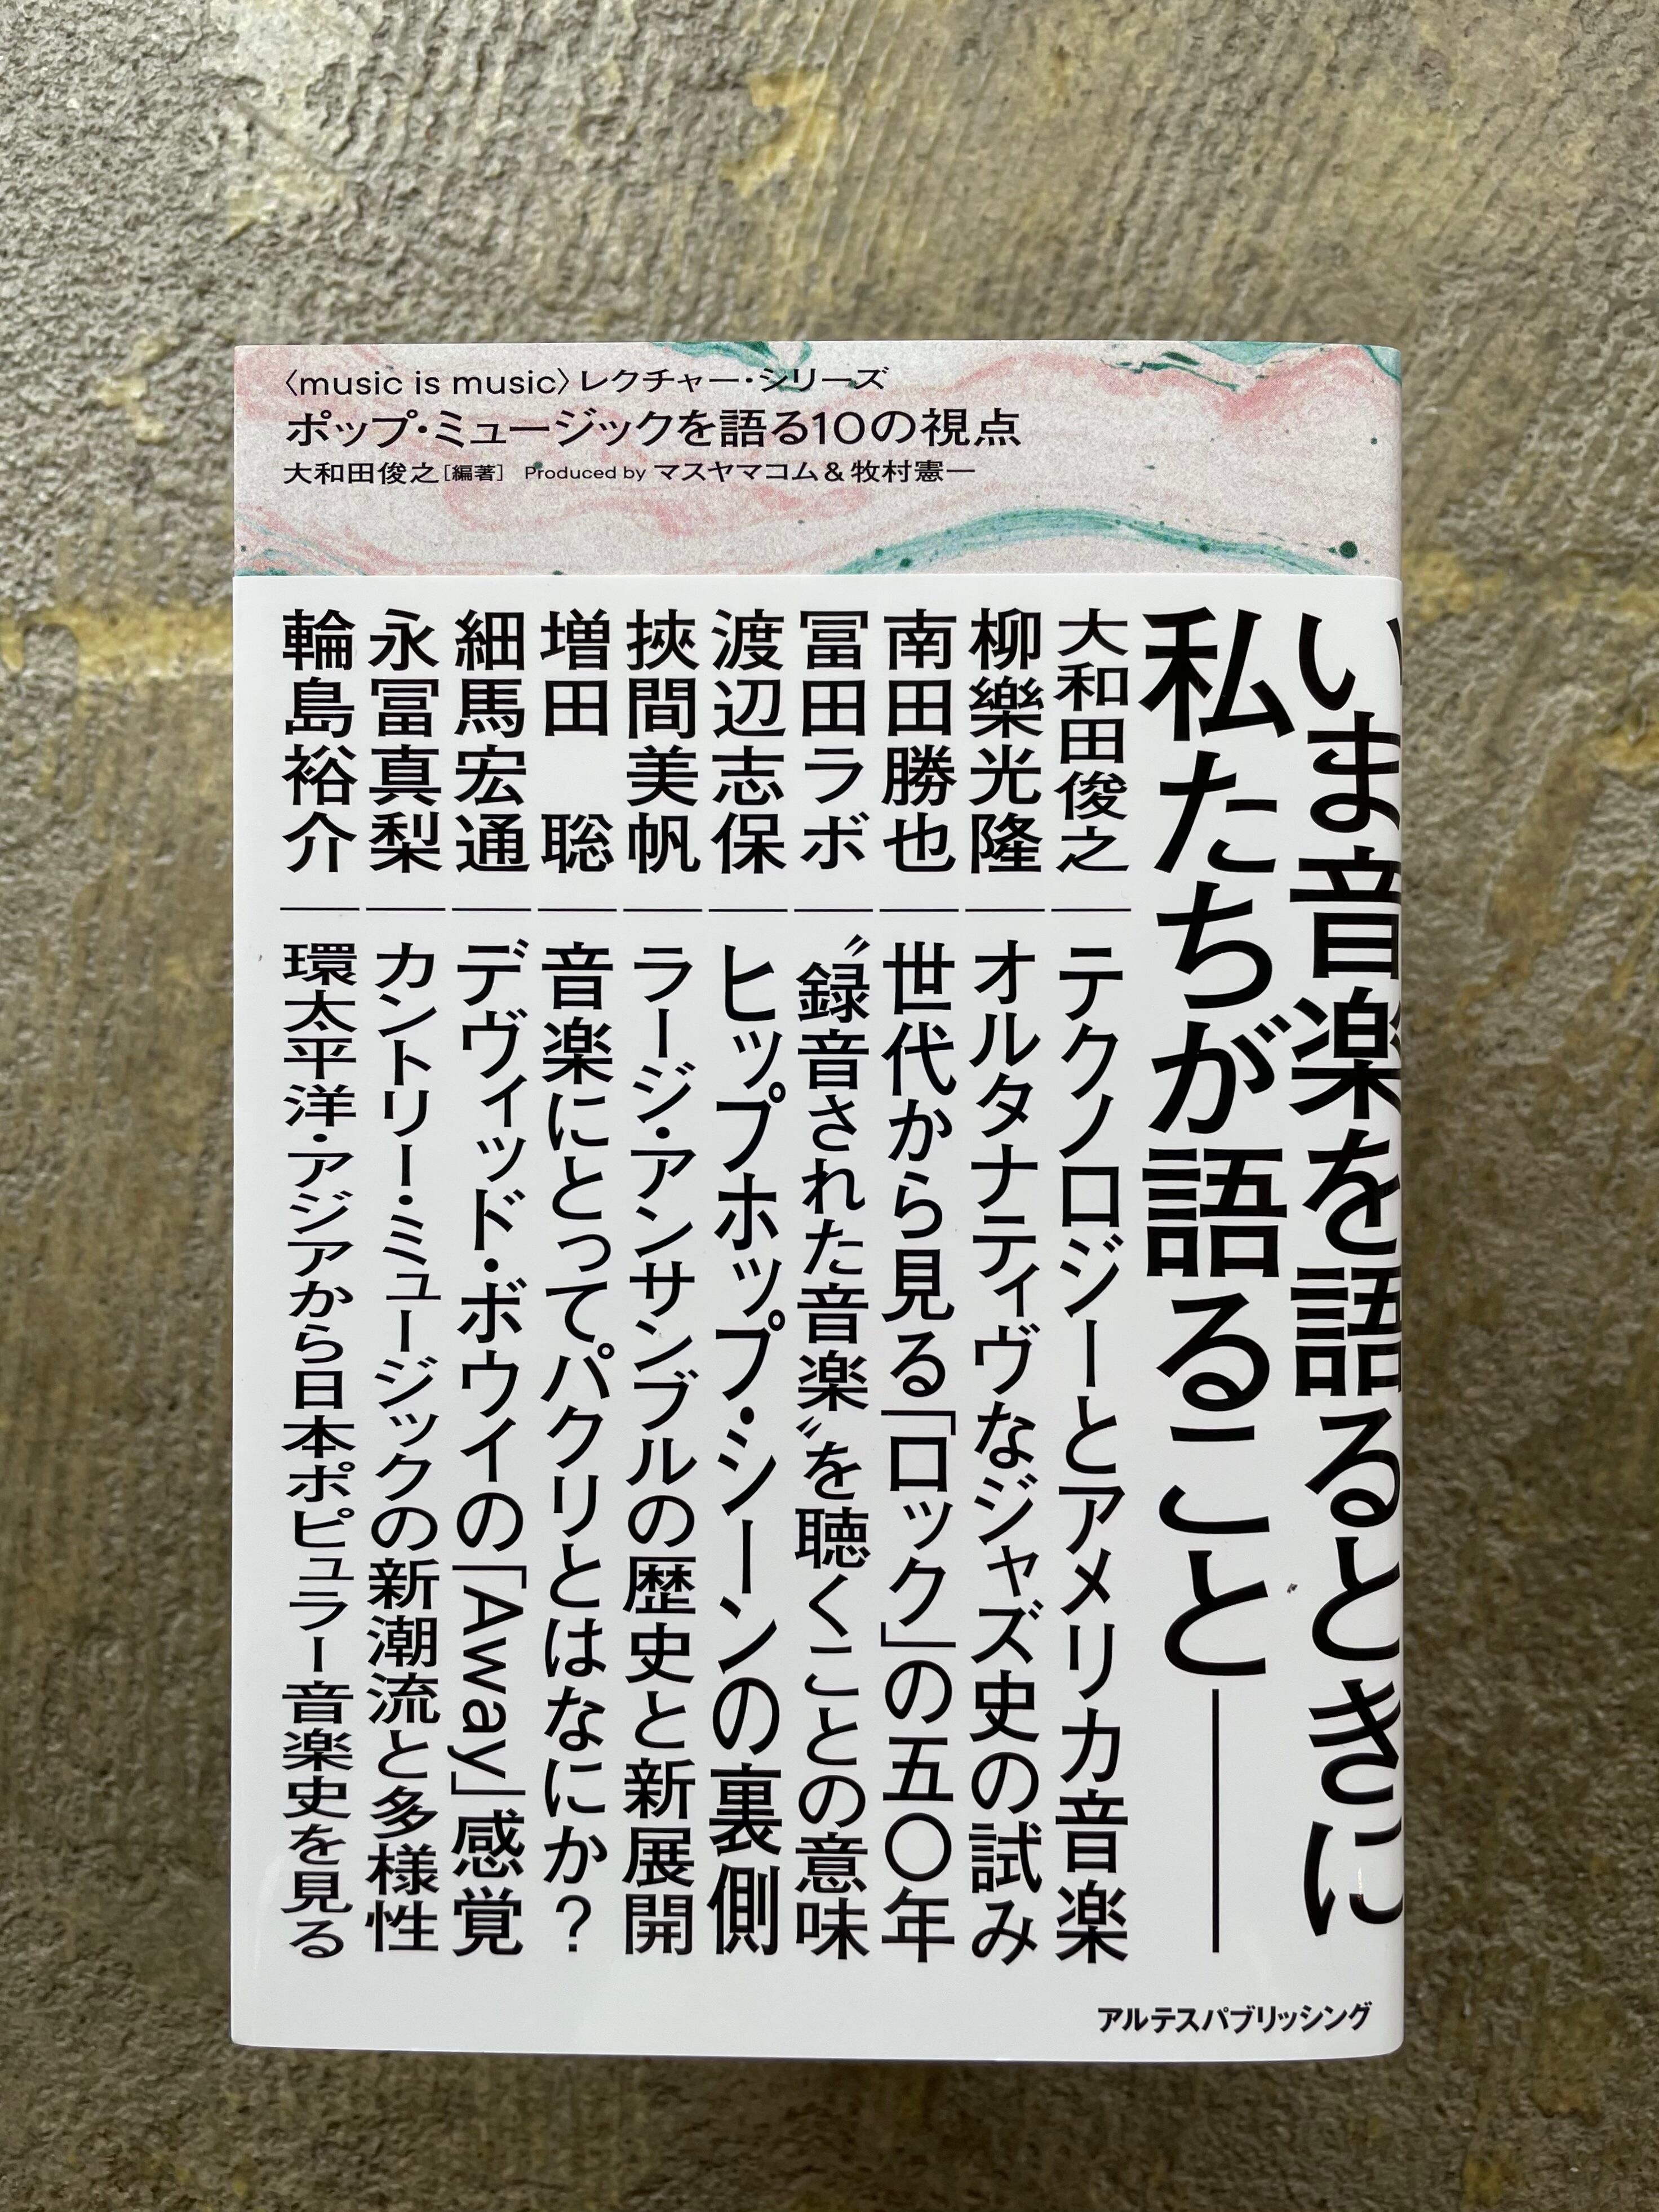 〈music is music〉レクチャー・シリーズ
ポップ・ミュージックを語る10の視点
大和田俊之[編著] Produced by マスヤマコム&牧村憲一
いま音楽を語るときに
私たちが語ること――
大和田俊之｜テクノロジーとアメリカ音楽
柳樂光隆｜オルタナティヴなジャズ史の試み
南田勝也｜世代から見る「ロック」の五〇年
冨田ラボ｜〝録音された音楽〟を聴くことの意味
渡辺志保｜ヒップホップ・シーンの裏側
挾間美帆｜ラージ・アンサンブルの歴史と新展開
増田 聡｜音楽にとってパクリとはなにか?
細馬宏通｜デヴィッド・ボウイの「Away」感覚
永冨真梨｜カントリー・ミュージックの新潮流と多様性
輪島裕介｜環太平洋・アジアから日本ポピュラー音楽史を見る
アルテスパブリッシング